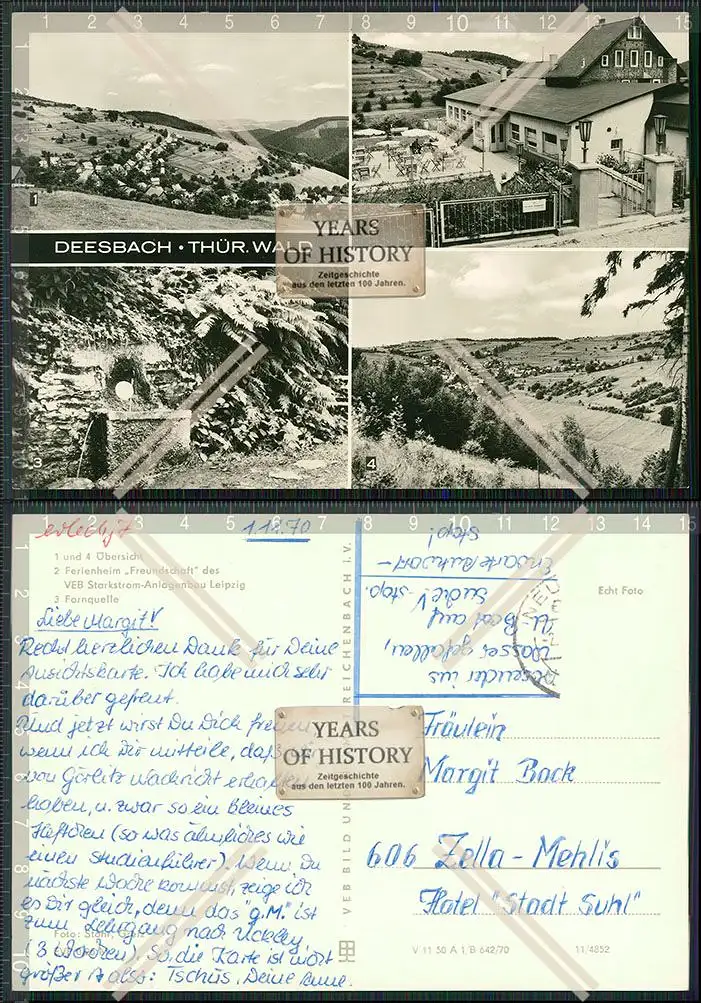 DEESBACH • THÜR. WALD
YEARS
OF HISTORY
Zeitgeschichte
aus den letzten 100 Jahren.
1
3
4
erledigt
1.12.70
1 und 4 Übersicht
2 Ferienheim „Freundschaft" des
VEB Starkstrom-Anlagenbau Leipzig
3 Farnquelle
Liebe Margit!
Recht herzlichen Dank für Deine
Ansichtskarte. Ich habe mich sehr
darüber gefreut.
Und jetzt wirst Du Dich freuen
wenn ich Dir mitteile, daß
von Görlitz Nachricht erhalten
haben, u. zwar so ein kleines
Heftchen (so was ähnliches wie
einen Studienführer). Wenn Du
nächste Woche kommst, zeige ich
es Dir gleich, denn das "g.M." ist
zum Lehrgang nach Uckley
(3 Wochen). So, die Karte ist nicht
größer also: Tschüs, Deine Anne.
Foto: Stöhr,
VEB BILD UND REICHENBACH i. V.
Absender ins
Wasser gefallen,
U Boot auf
Suche! -stop.
Erwarte Antwort -
stop!
Echt Foto
YEARS
OF HISTORY
Zeitgeschichte
aus den letzten 100 Jahren.
Fräulein
Margit Bock
606 Zella-Mehlis
Hotel "Stadt Suhl"
V 11 50 A 1/B 642/70 11/4852